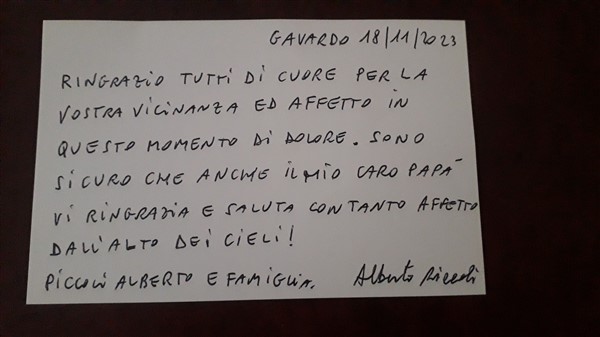 GAVARDO 18/11/2023
RINGRAZIO TUTTI DI CUORE PER LA
VOSTRA VICINANZA ED AFFETTO IN
QUESTO MOMENTO DI DOLORE. SONO
SICURO CHE ANCHE IL MIO CARO PAPÀ
VI RINGRAZIA E SALUTA CON TANTO AFFETTO
DALL'ALTO DEI CIELI!
PICCOLI ALBERTO E FAMIGLIA. Alberto Piccoli